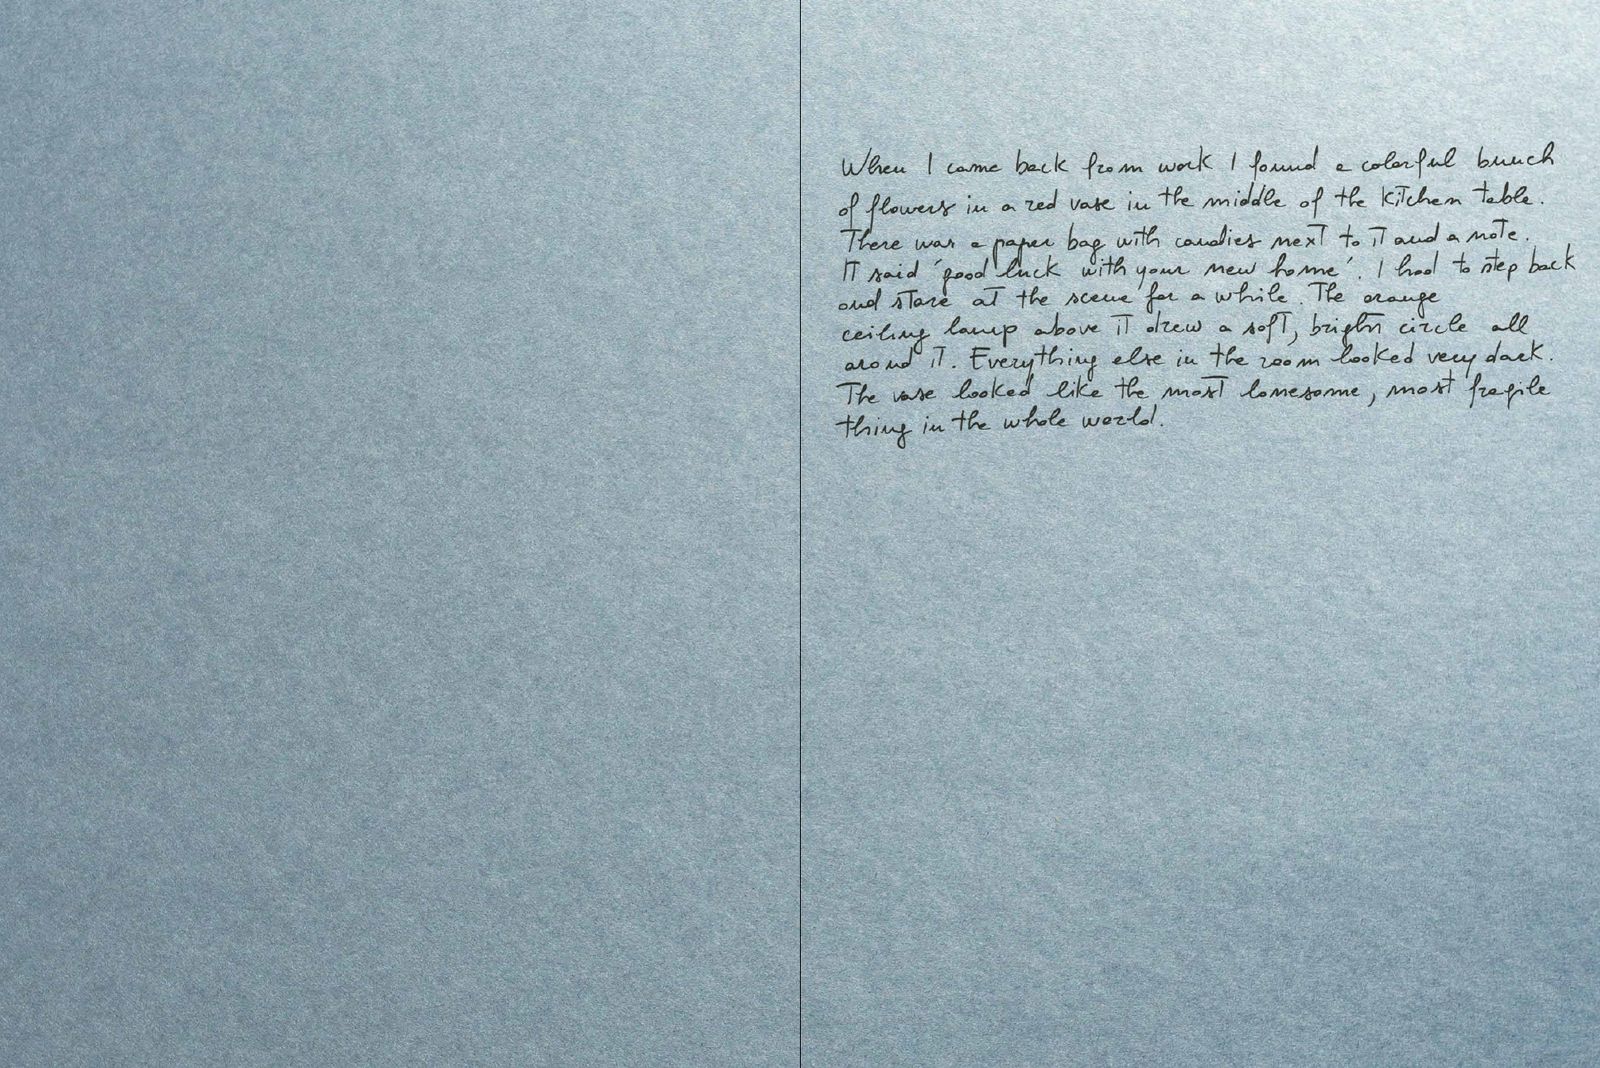 When I came back from work I found a colorful bunch
of flowers in a red vase in the middle of the kitchen table.
There was a paper bag with candies next to it and a note.
It said 'good luck with your new home'. I had to step back
and stare at the scene for a while. The orange
ceiling lamp above it drew a soft, bright circle all
around it. Everything else in the room looked very dark.
The vase looked like the most lonesome, most fragile
thing in the whole world.